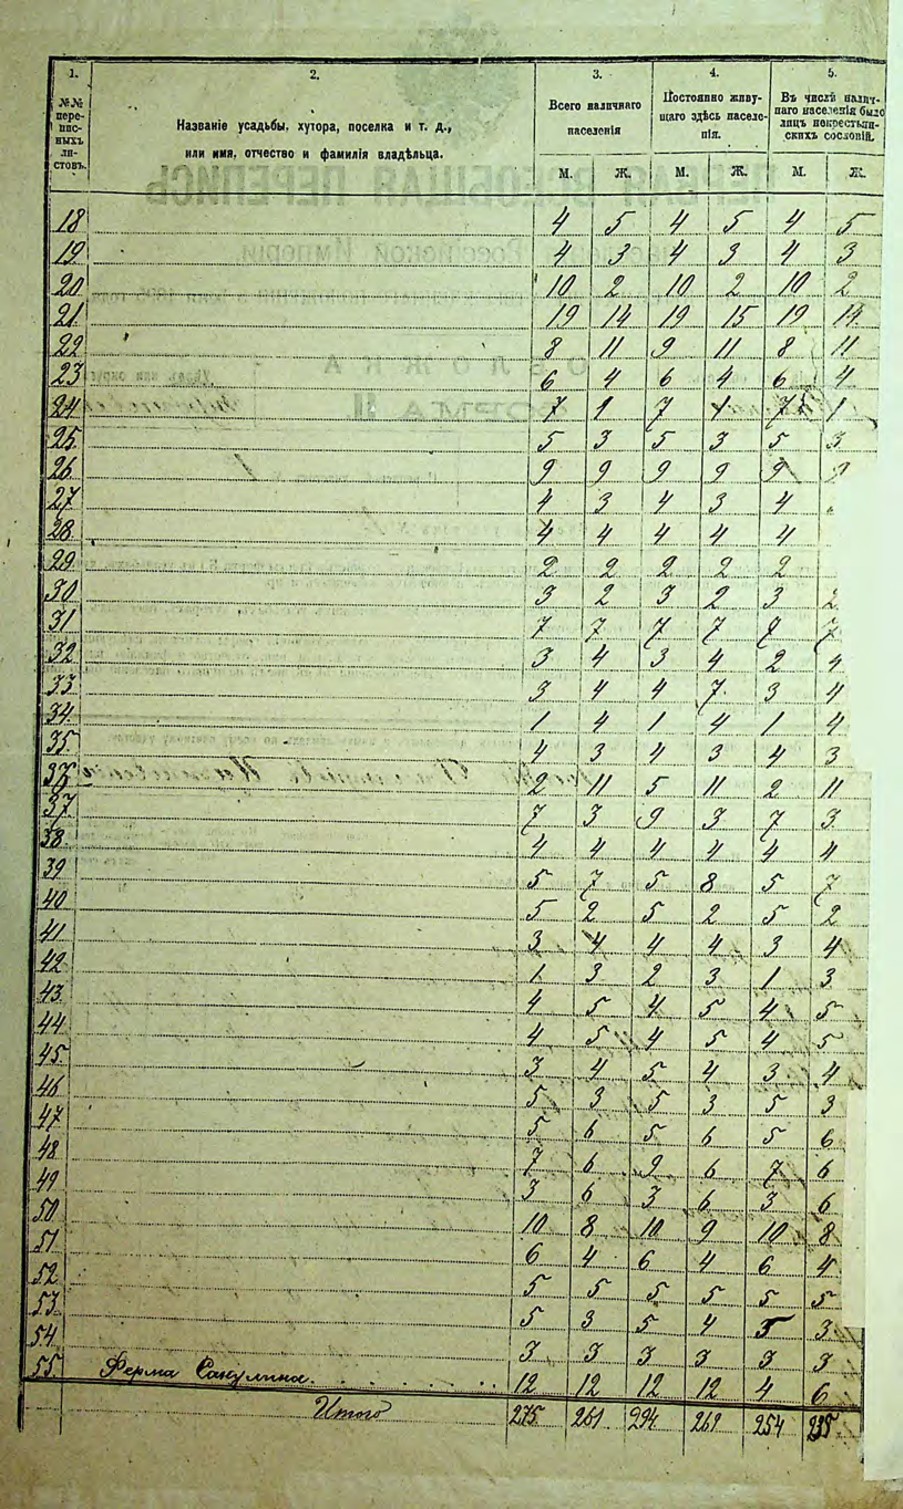 1. 2. 3. 4. 5.
№№ пере-пис-ныхъ ли-стовъ.
Названіе усадьбы, хутора, поселка и т. д.,
или имя, отчество и фамилія владѣльца.
Всего наличнаго
населенія
Постоянно живу-
щаго здѣсь населе-
нія.
Въ числѣ налич-
наго населенія было
лицъ некрестьян-
скихъ сословій.
М. Ж. М. Ж. М. Ж.
18 4 5 4 5 4 5
19 4 3 4 3 4 3
20 10 2 10 2 10 2
21 19 14 19 15 19 14
22 8 11 9 11 8 11
23 6 4 6 4 6 4
24 7 1 7 1 7 1
25 5 3 5 3 5 3
26 9 9 9 9 9 9
27 4 3 4 3 4
28 4 4 4 4 4
29 2 2 2 2 2
30 3 2 3 2 3 2
31 7 7 7 7 7 7
32 3 4 3 4 2 4
33 3 4 4 7 3 4
34 1 4 1 4 1 4
35 4 3 4 3 4 3
2 11 5 11 2 11
37 7 3 9 3 7 3
38 4 4 4 4 4 4
39 5 7 5 8 5 7
40 5 2 5 2 5 2
41 3 4 4 4 3 4
42 1 3 2 3 1 3
43 4 5 4 5 4 5
44 4 5 4 5 4 5
45 3 4 5 4 3 4
46 5 3 5 3 5 3
47 5 6 5 6 5 6
48 7 6 9 6 7 6
49 3 6 3 6 3 6
50 10 8 10 9 10 8
51 6 4 6 4 6 4
52 5 5 5 5 5 5
53 5 3 5 4 5 3
54 3 3 3 3 3 3
55 Ферма Сакулина 12 12 12 12 4 6
Итого 275 261 294 269 254 235